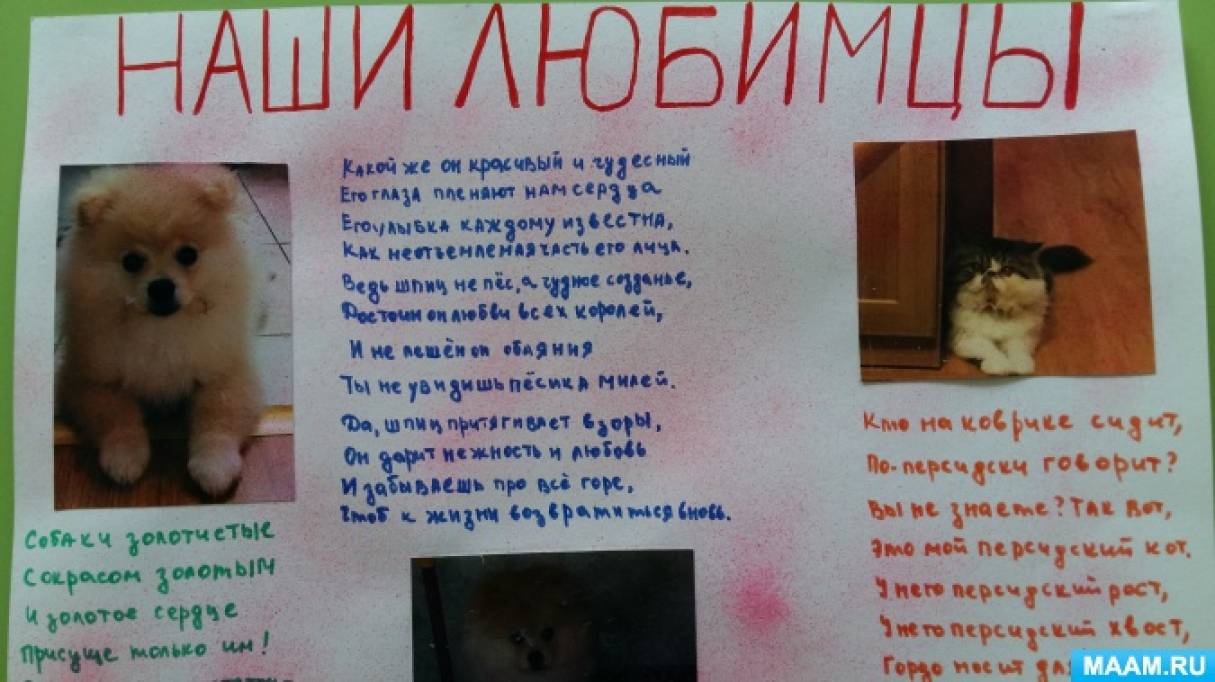 НАШИ ЛЮБИМЦЫ
Какой же он красивый и чудесный
Его глаза пленяют нам сердца
Его улыбка каждому известна,
Как неотъемлемая часть его лица.
Ведь шпиц не пёс, а чудное созданье,
Достоин он любви всех королей,
И не лешён он обаяния
Ты не увидишь пёсика милей.
Да, шпиц притягивает взоры,
Он дарит нежность и любовь
И забываешь про всё горе,
Чтоб к жизни возвратиться вновь.
Собаки золотистые
С окрасом золотым
И золотое сердце
Присуще только им!
Кто на коврике сидит,
По-персидски говорит?
Вы не знаете? Так вот,
Это мой персидский кот.
У него персидский рост,
У него персидский хвост,
Гордо носит
MAAM.RU